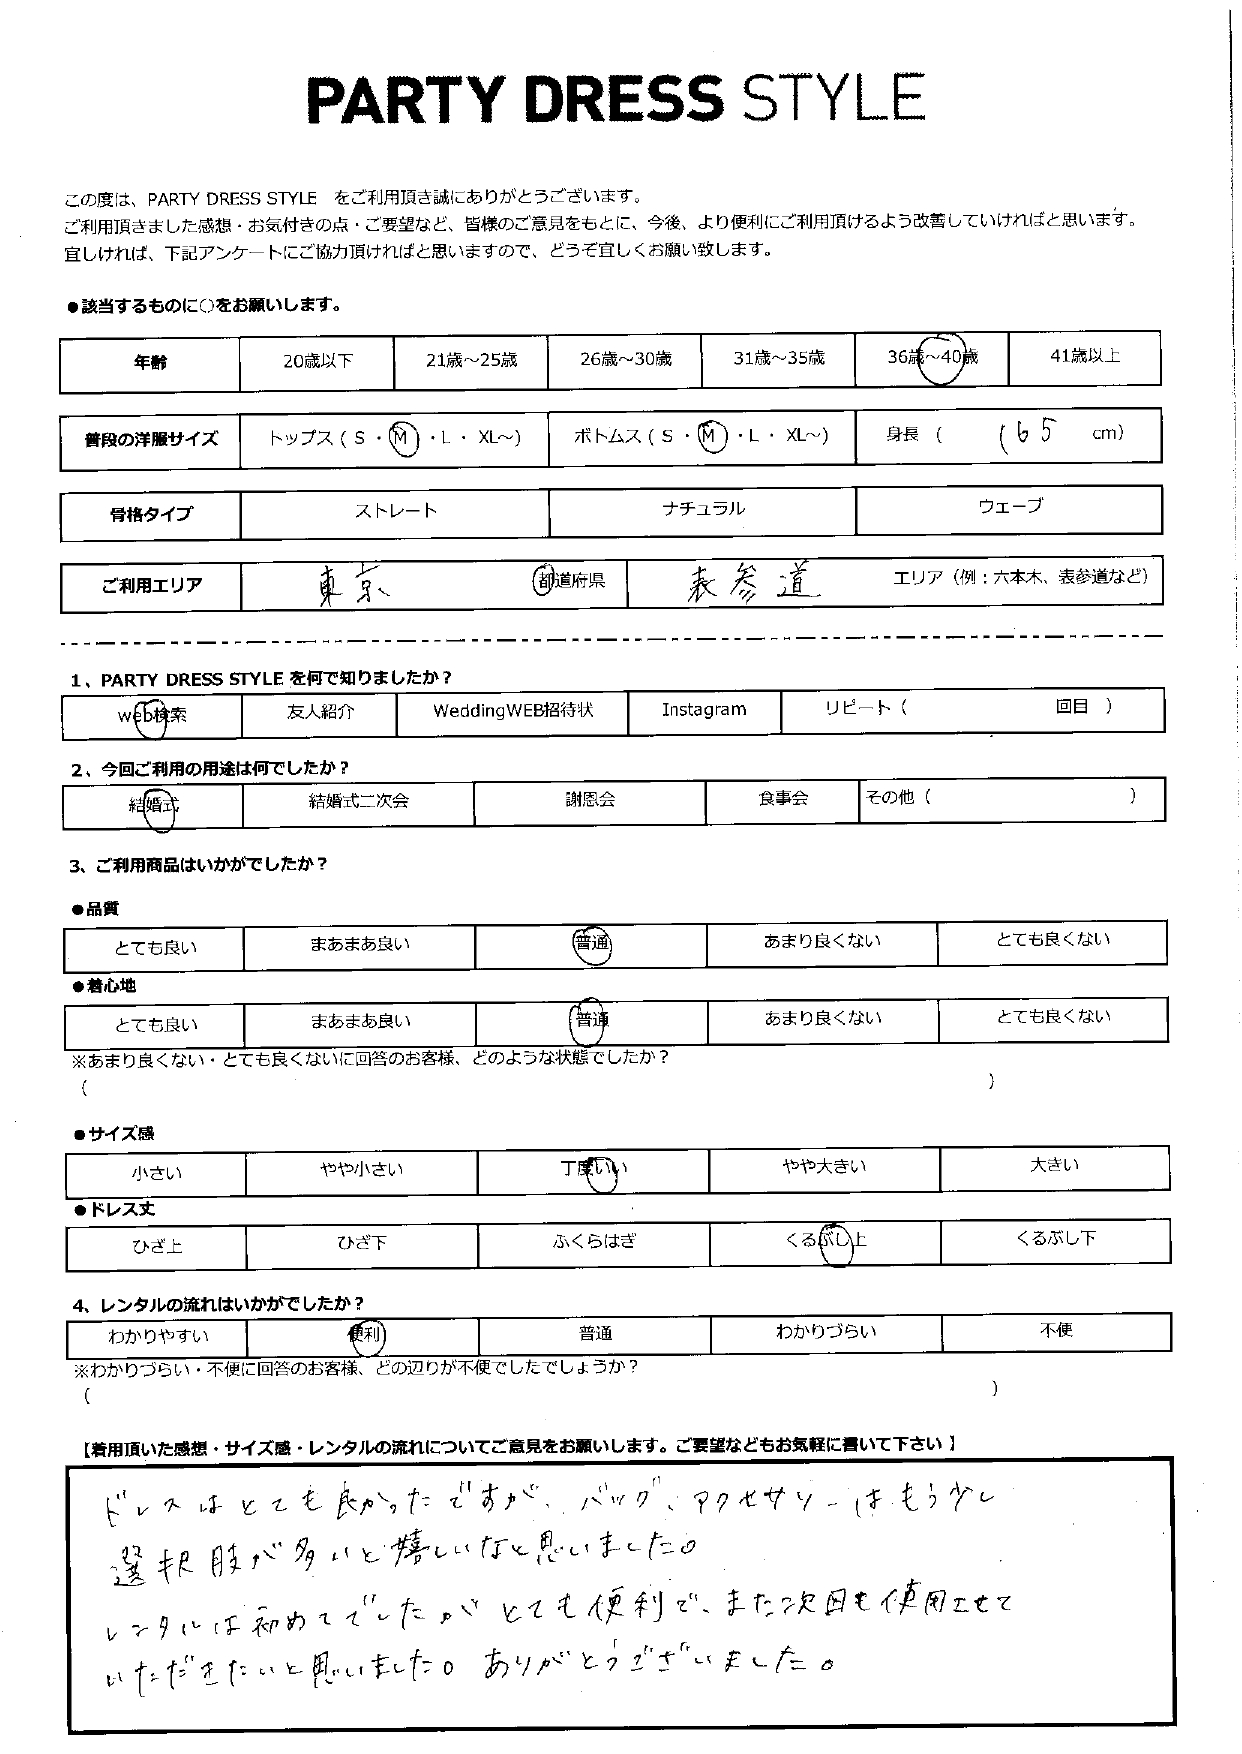 PARTY DRESS STYLE
この度は、PARTY DRESS STYLE をご利用頂き誠にありがとうございます。
ご利用頂きました感想・お気付きの点・ご要望など、皆様のご意見をもとに、今後、より便利にご利用頂けるよう改善していければと思います。
宜しければ、下記アンケートにご協力頂ければと思いますので、どうぞ宜しくお願い致します。
●該当するものに○をお願いします。
年齢 20歳以下 21歳～25歳 26歳～30歳 31歳～35歳 36歳～40歳 41歳以上
普段の洋服サイズ トップス ( S ・ M ・ L ・ XL～) ボトムス ( S ・ M ・ L ・ XL～) 身長 ( 165 cm)
骨格タイプ ストレート ナチュラル ウェーブ
ご利用エリア 東京 都道府県 表参道 エリア（例：六本木、表参道など）
1、PARTY DRESS STYLE を何で知りましたか？
web検索 友人紹介 WeddingWEB招待状 Instagram リピート ( 回目 )
2、今回ご利用の用途は何でしたか？
結婚式 結婚式二次会 謝恩会 食事会 その他 ( )
3、ご利用商品はいかがでしたか？
●品質
とても良い まあまあ良い 普通 あまり良くない とても良くない
●着心地
とても良い まあまあ良い 普通 あまり良くない とても良くない
※あまり良くない・とても良くないに回答のお客様、どのような状態でしたか？
( )
●サイズ感
小さい やや小さい 丁度いい やや大きい 大きい
●ドレス丈
ひざ上 ひざ下 ふくらはぎ くるぶし上 くるぶし下
4、レンタルの流れはいかがでしたか？
わかりやすい 便利 普通 わかりづらい 不便
※わかりづらい・不便に回答のお客様、どの辺りが不便でしたでしょうか？
( )
【着用頂いた感想・サイズ感・レンタルの流れについてご意見をお願いします。ご要望などもお気軽に書いて下さい】
ドレスはとても良かったですが、バッグ、アクセサリーはもう少し
選択肢が多いと嬉しいなと思いました。
レンタルは初めてでしたがとても便利で、また次回も使用させて
いただきたいと思いました。ありがとうございました。